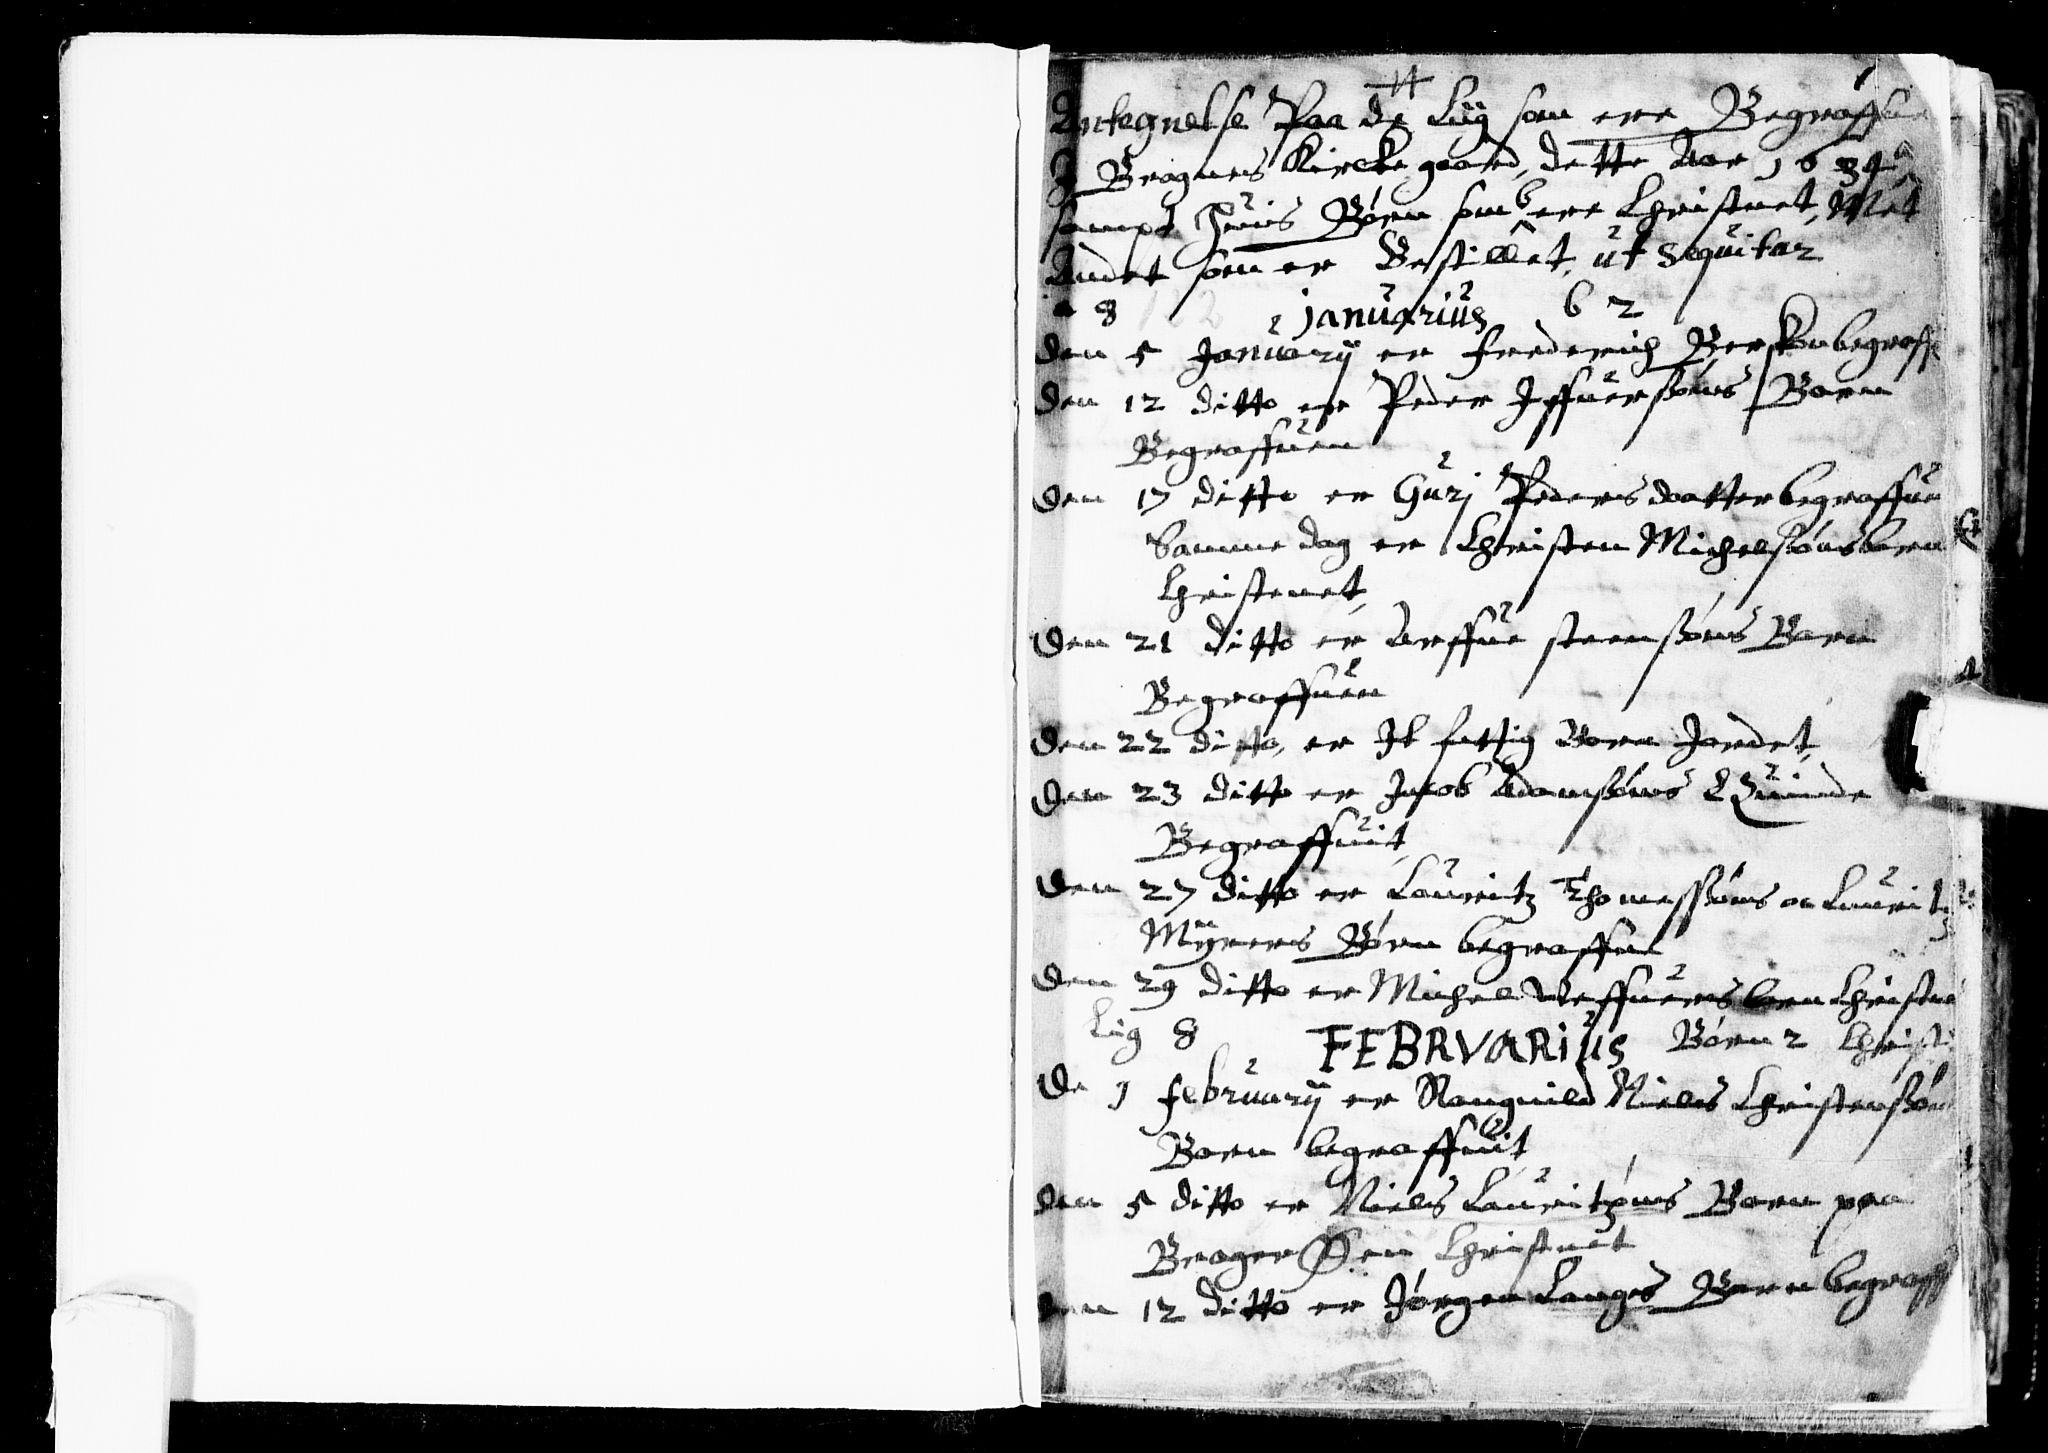 Antegnelse Paa de Lijg som ere Begraffue
J Bragnes Kircke gaard, dette Aar 1634
sampt huis Børn som ere Christnet, Met
Andet som er Bestillet, ut sequitur
8 januarius 6 2
Den 5 Januarij er Frederich begraff
Den 12 ditto er Peder Iffuersøns Barn
Begraffuen
Den 17 ditto er Gurj Pedersdaatter begraffue
Samme dag er Christen Michelsøns barn
Christenet
Den 21 ditto er Arffue steensøns Barn
Begraffuen
Den 22 ditto, er It fattig Barn Jordet,
Den 23 ditto er Jacob Adamsøns Quinde
Begraffuit,
Den 27 ditto er Lauritz Thomessøns oc Laurit
Mÿrers Børn begraffue
Den 29 ditto er Michel Veffuers barn Christne
Lig 8 FEBRVARius Børn 2 Christ
De 1 februarij er Rangnild Niels Christensøn
Barn begraffuit
Den 5 ditto er Niels Lauritzøns Barn paa
Brager Øen Christnet
Den 12 ditto er Jørgen Langes Barn begraff